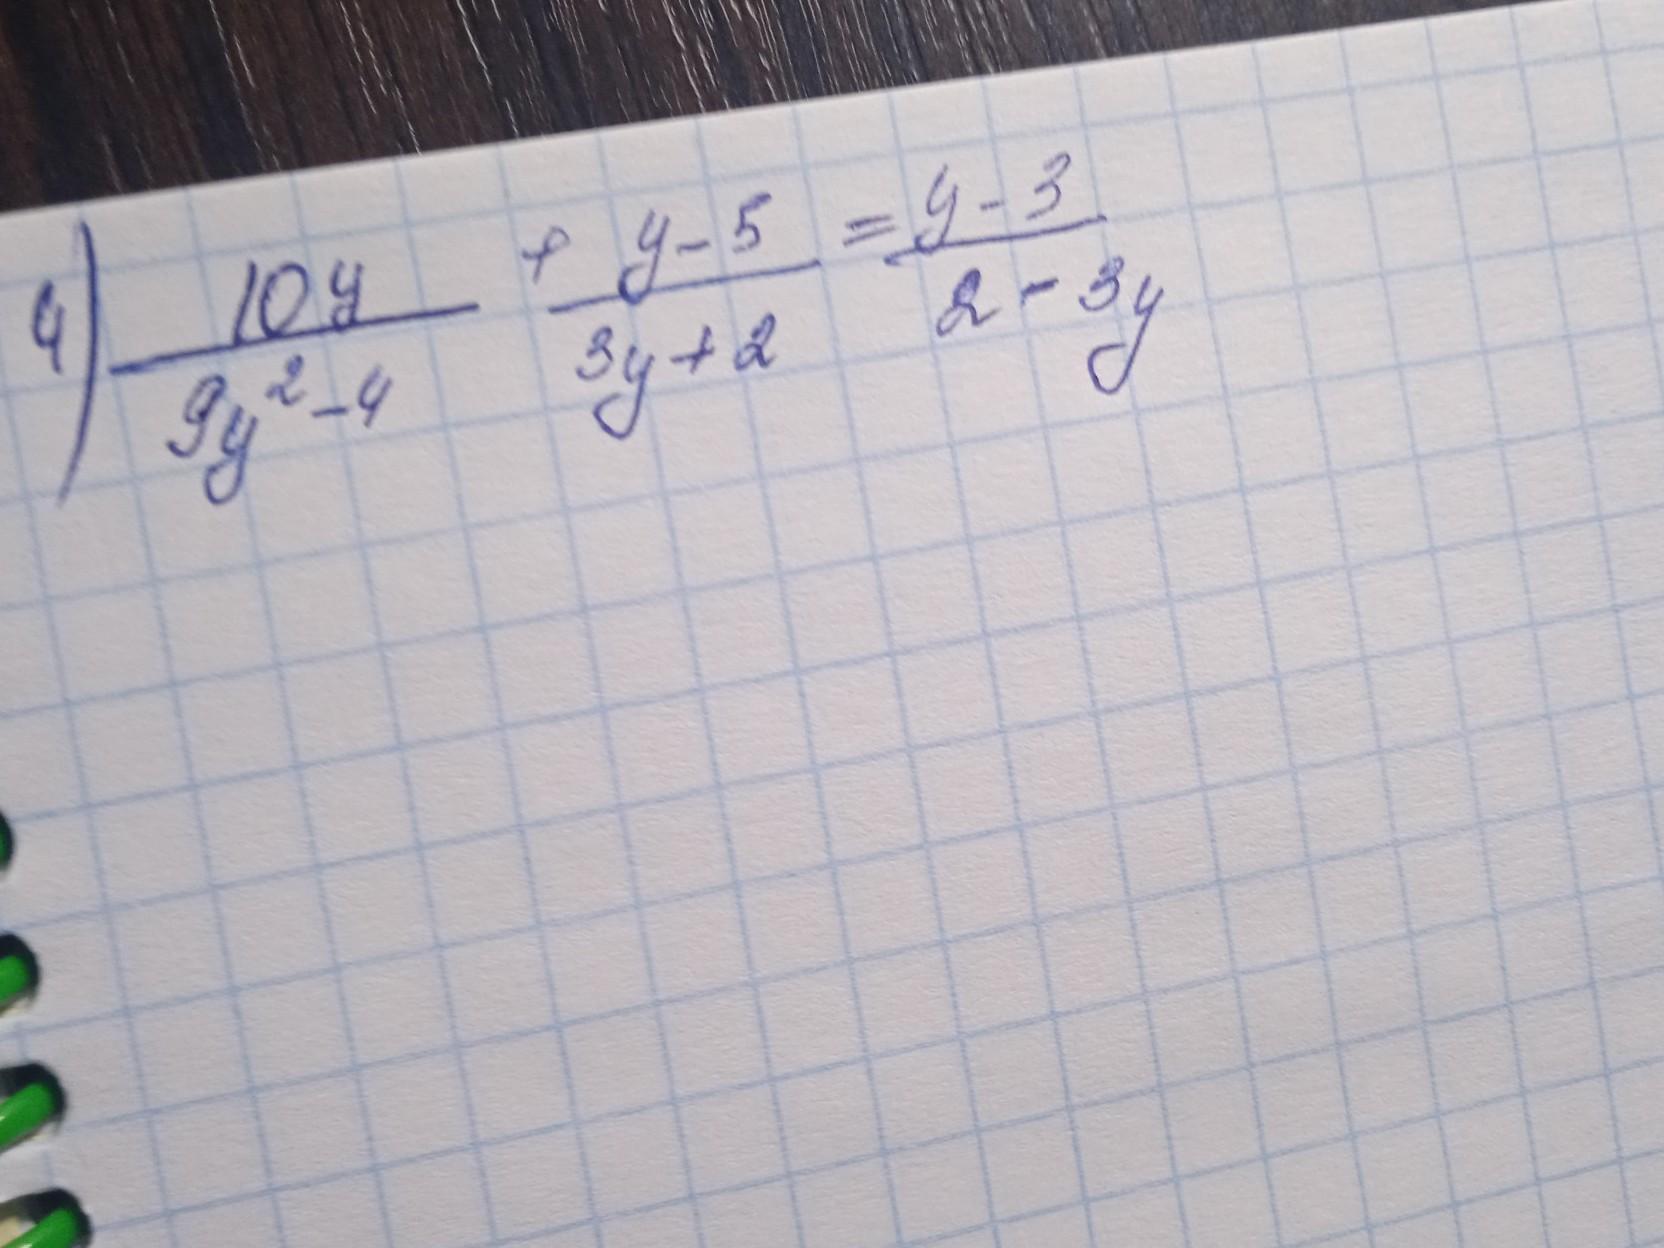 4) \frac{10y}{9y^2-4} + \frac{y-5}{3y+2} = \frac{y-3}{2-3y}